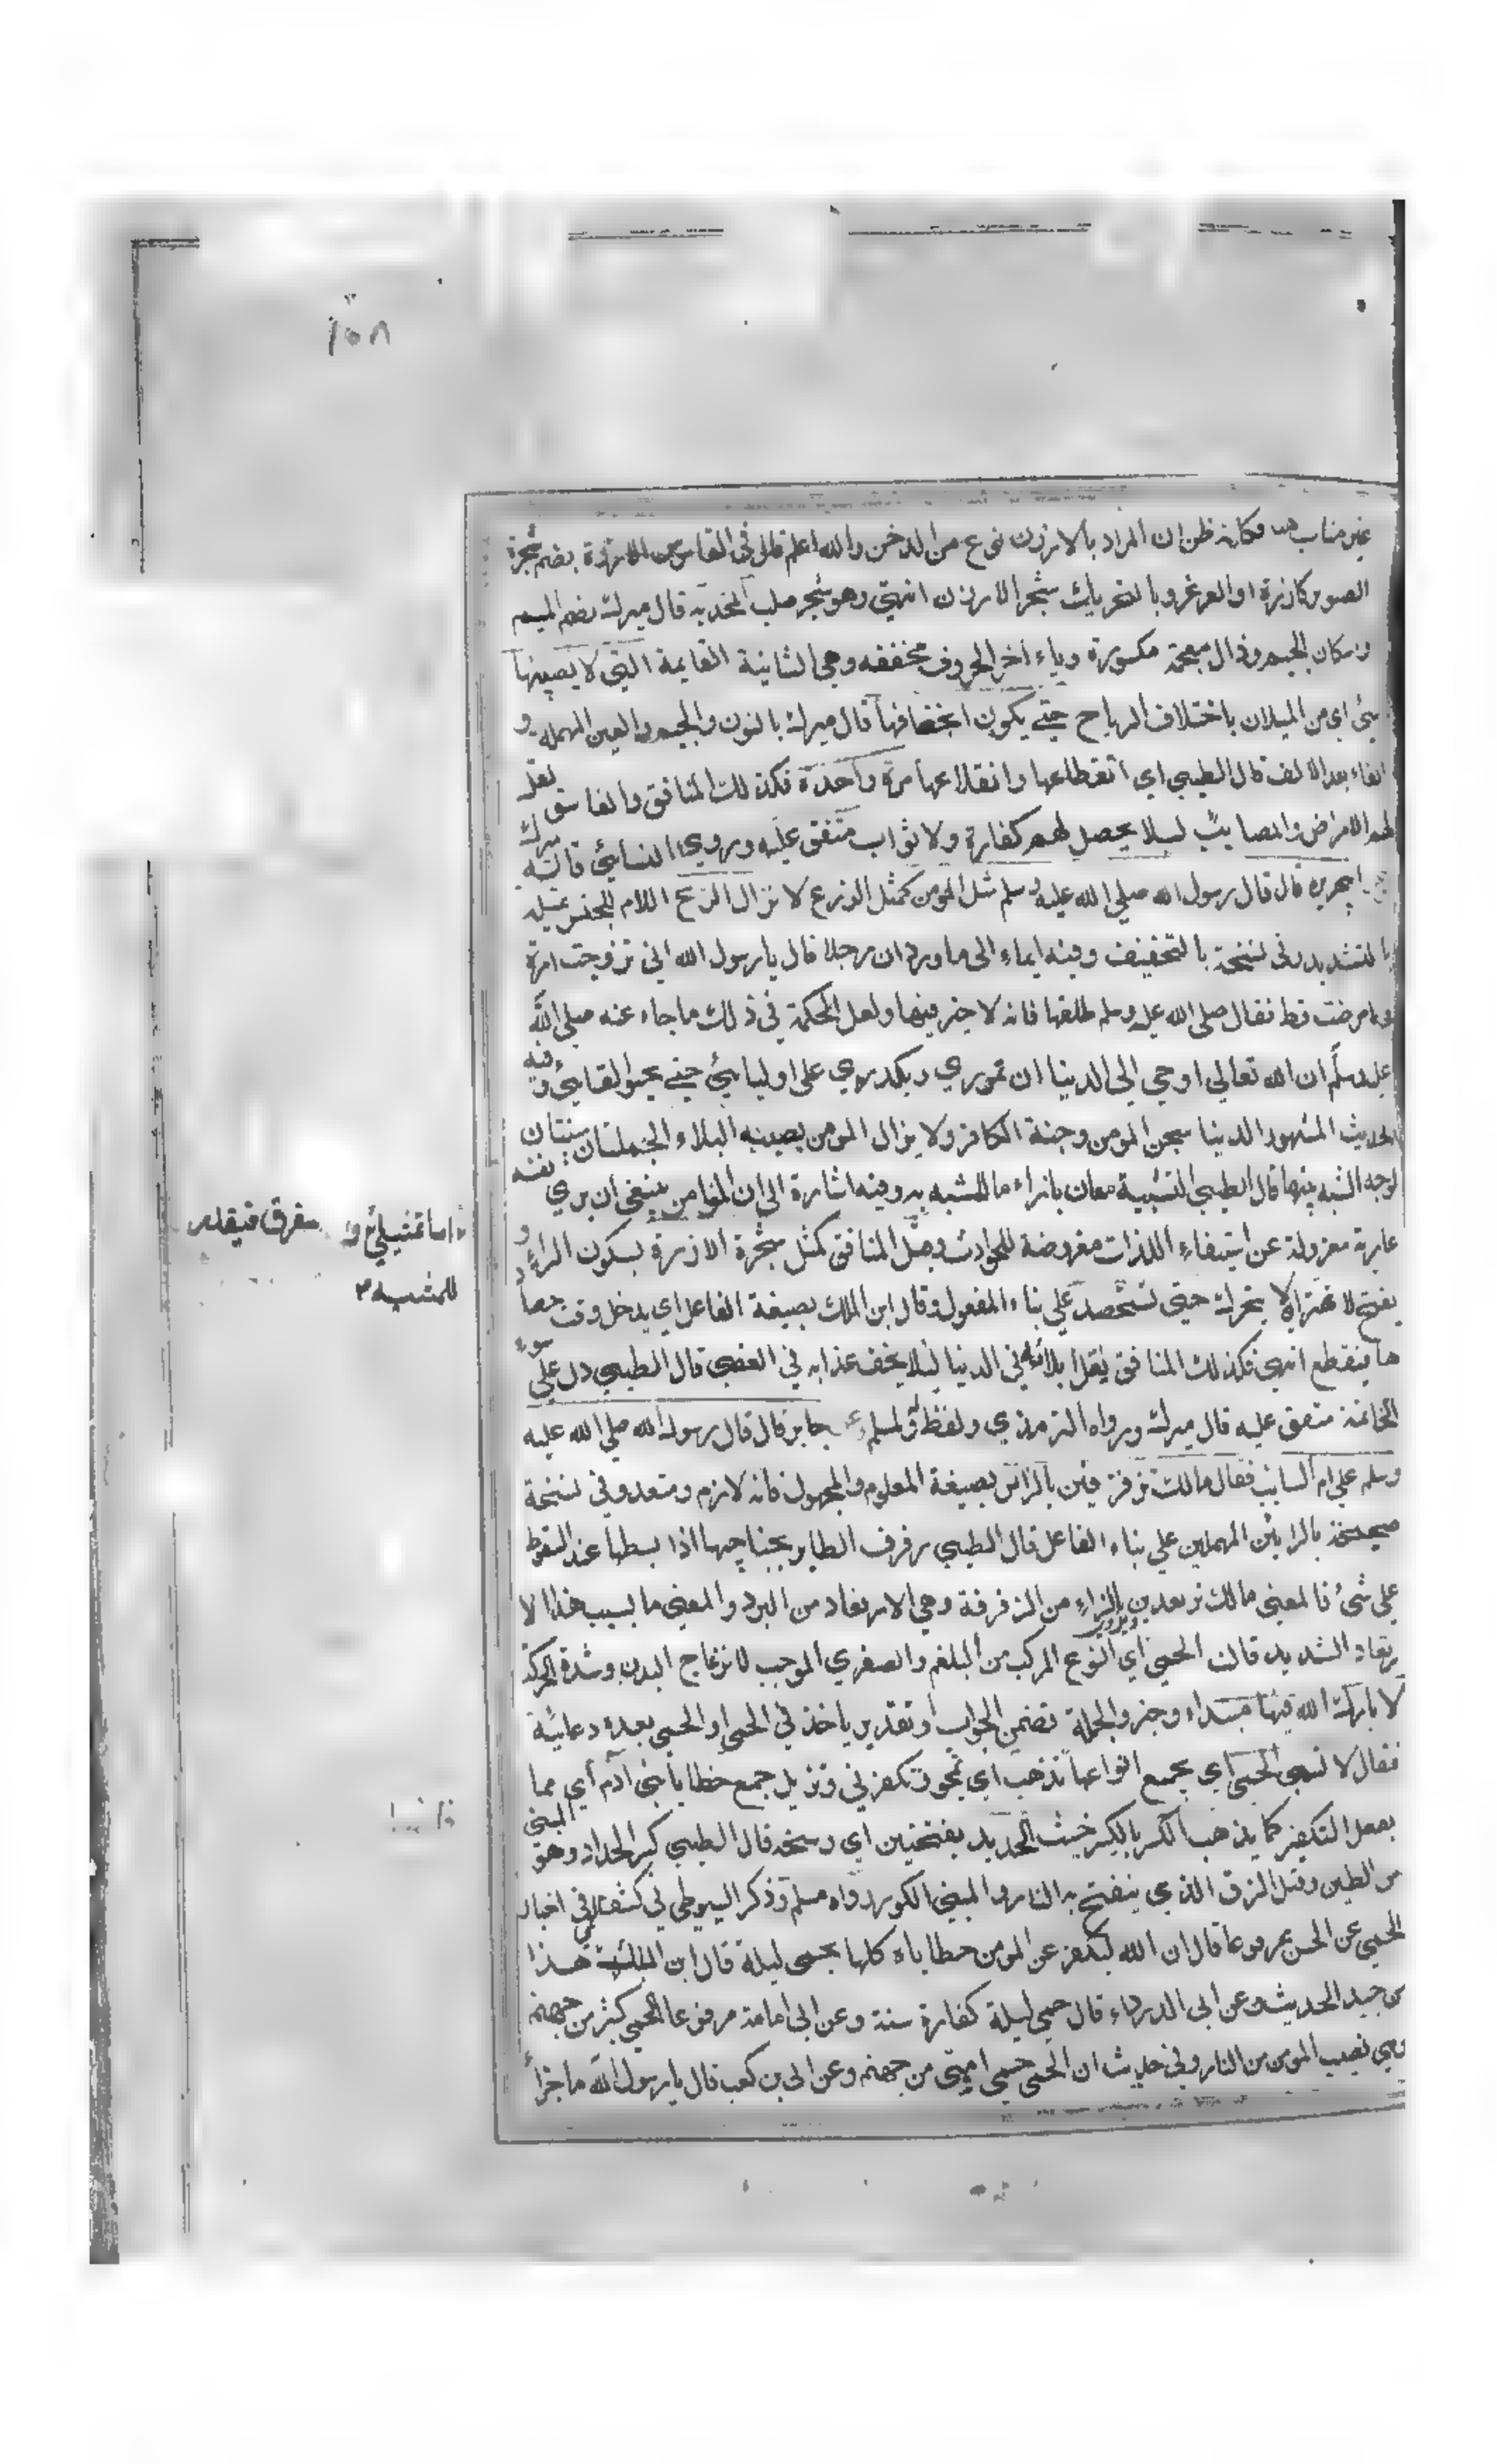 ١٥٨
غير مناسب هنا فكانه ظن ان المراد بالارزن نوع من الدخن والله اعلم قال في القاموس الارزة بضم شجرة
الصنوبر كارزة او العرعر وبالتحريك شجر الارزن انتهي وهو شجر صلب المجذية قال ميرك بضم الميم
واسكان الجيم وذال معجمة مكسورة وياء اخر الحروف مخففه وهي الثانية القايمة التي لا يصيبها
شئ اي من الميلان باختلاف الرياح حتي يكون انجعافها قال ميرك بالنون والجيم والعين المهمله و
الفاء بعد الالف قال الطيبي اي انقطاعها وانقلاعها مرة واحدة فكذلك المنافق والفاسق تقل
لهم الامراض والمصايب ليلا يحصل لهم كفارة ولا ثواب متفق عليه وروي النسائي قاله ميرك
ابي هريره قال قال رسول الله صلي الله عليه وسلم مثل المومن كمثل الزرع لا تزال الريح اللام للجنس تميله
بالتشديد وفي نسخة بالتخفيف وفيه ايماء الى ما ورد ان رجلا قال يا رسول الله اني تزوجت امرة
وما مرضت قط فقال صلى الله عليه وسلم طلقها فانه لا خير فيها ولعل الحكمة في ذلك ما جاء عنه صلي الله
عليه وسلم ان الله تعالي اوحي الي الدنيا ان تمرري وتكدري على اوليائي حتي يحبوا لقائي وفيه
الحديث المشهور الدنيا سجن المومن وجنة الكافر ولا يزال المومن يصيبه البلاء الجملتان مبينتان
لوجه الشبه بينهما قال الطيبي التشبيه معان بازاء ما للمشبه به وفيه اشارة الي ان المؤمن ينبغي ان يري نفسه
عارية معزولة عن استيفاء اللذات معروضة للحوادث ومثل المنافق كمثل شجرة الارزة بسكون الراء و
يفتح لا تهتز اي لا تتحرك حتي تستحصد علي بناء المفعول وقال ابن الملك بصيغة الفاعل اي يدخل وقت حصاد
ها فينقطع انتهي فكذلك المنافق يقل بلائه في الدنيا ليلا يخف عذابه في العقبي قال الطيبي دل علي سوء
الخاتمة متفق عليه قال ميرك ورواه الترمذي ولفظه لمسلم وعن جابر قال قال رسول الله صلي الله عليه
وسلم علي ام السائب فقال مالك تزفزفين بالزائين بصيغة المعلوم والمجهول فانه لازم ومتعد وفي نسخة
صحيحة بالرائين المهملين علي بناء الفاعل قال الطيبي رفرف الطاير بجناحيها اذا بسطها عند السقوط
علي شئ فالمعني مالك ترتعدين ويروي بالزاء من الزفزفة وهي الارتعاد من البرد والمعني ما بسبب هذا الا
رتعاد الشديد قالت الحمي اي النوع المركب من البلغم والصفري الموجب لانزعاج البدن وشدة الحركة
لا بارك الله فيها مبتداء وخبر والجملة تضمن الجواب او تقدير ياخذني الحمي او الحمي بعده دعائية
فقال لا تسبي الحمي اي بجميع انواعها تذهب اي تمحو وتكفر في وتزيل جمع خطايا بني آدم اي مما
يفعل التكفير كما يذهب الكير بالكير خبث الحديد بفتحتين اي وسخه قال الطيبي كير الحداد وهو المبني
من الطين وقيل الزق الذي ينفخ به النار والمبني الكور رواه مسلم وذكر السيوطي في كشف في اخبار
الحمي عن الحسن مرفوعا قال ان الله ليكفر عن المومن خطاياه كلها بحمي ليلة قال ابن المبارك هذا
من جيد الحديث وعن ابي الدرداء قال حمي ليلة كفارة سنة وعن ابي امامة مرفوعا الحمي كير من جهنم
وهي نصيب المومن من النار وفي حديث ان الحمي حمي امتي من جهنم وعن ابي بن كعب قال يا رسول الله ما جزاء
اما تمثيلي و مفرق فيقدر
للمشبه ٣